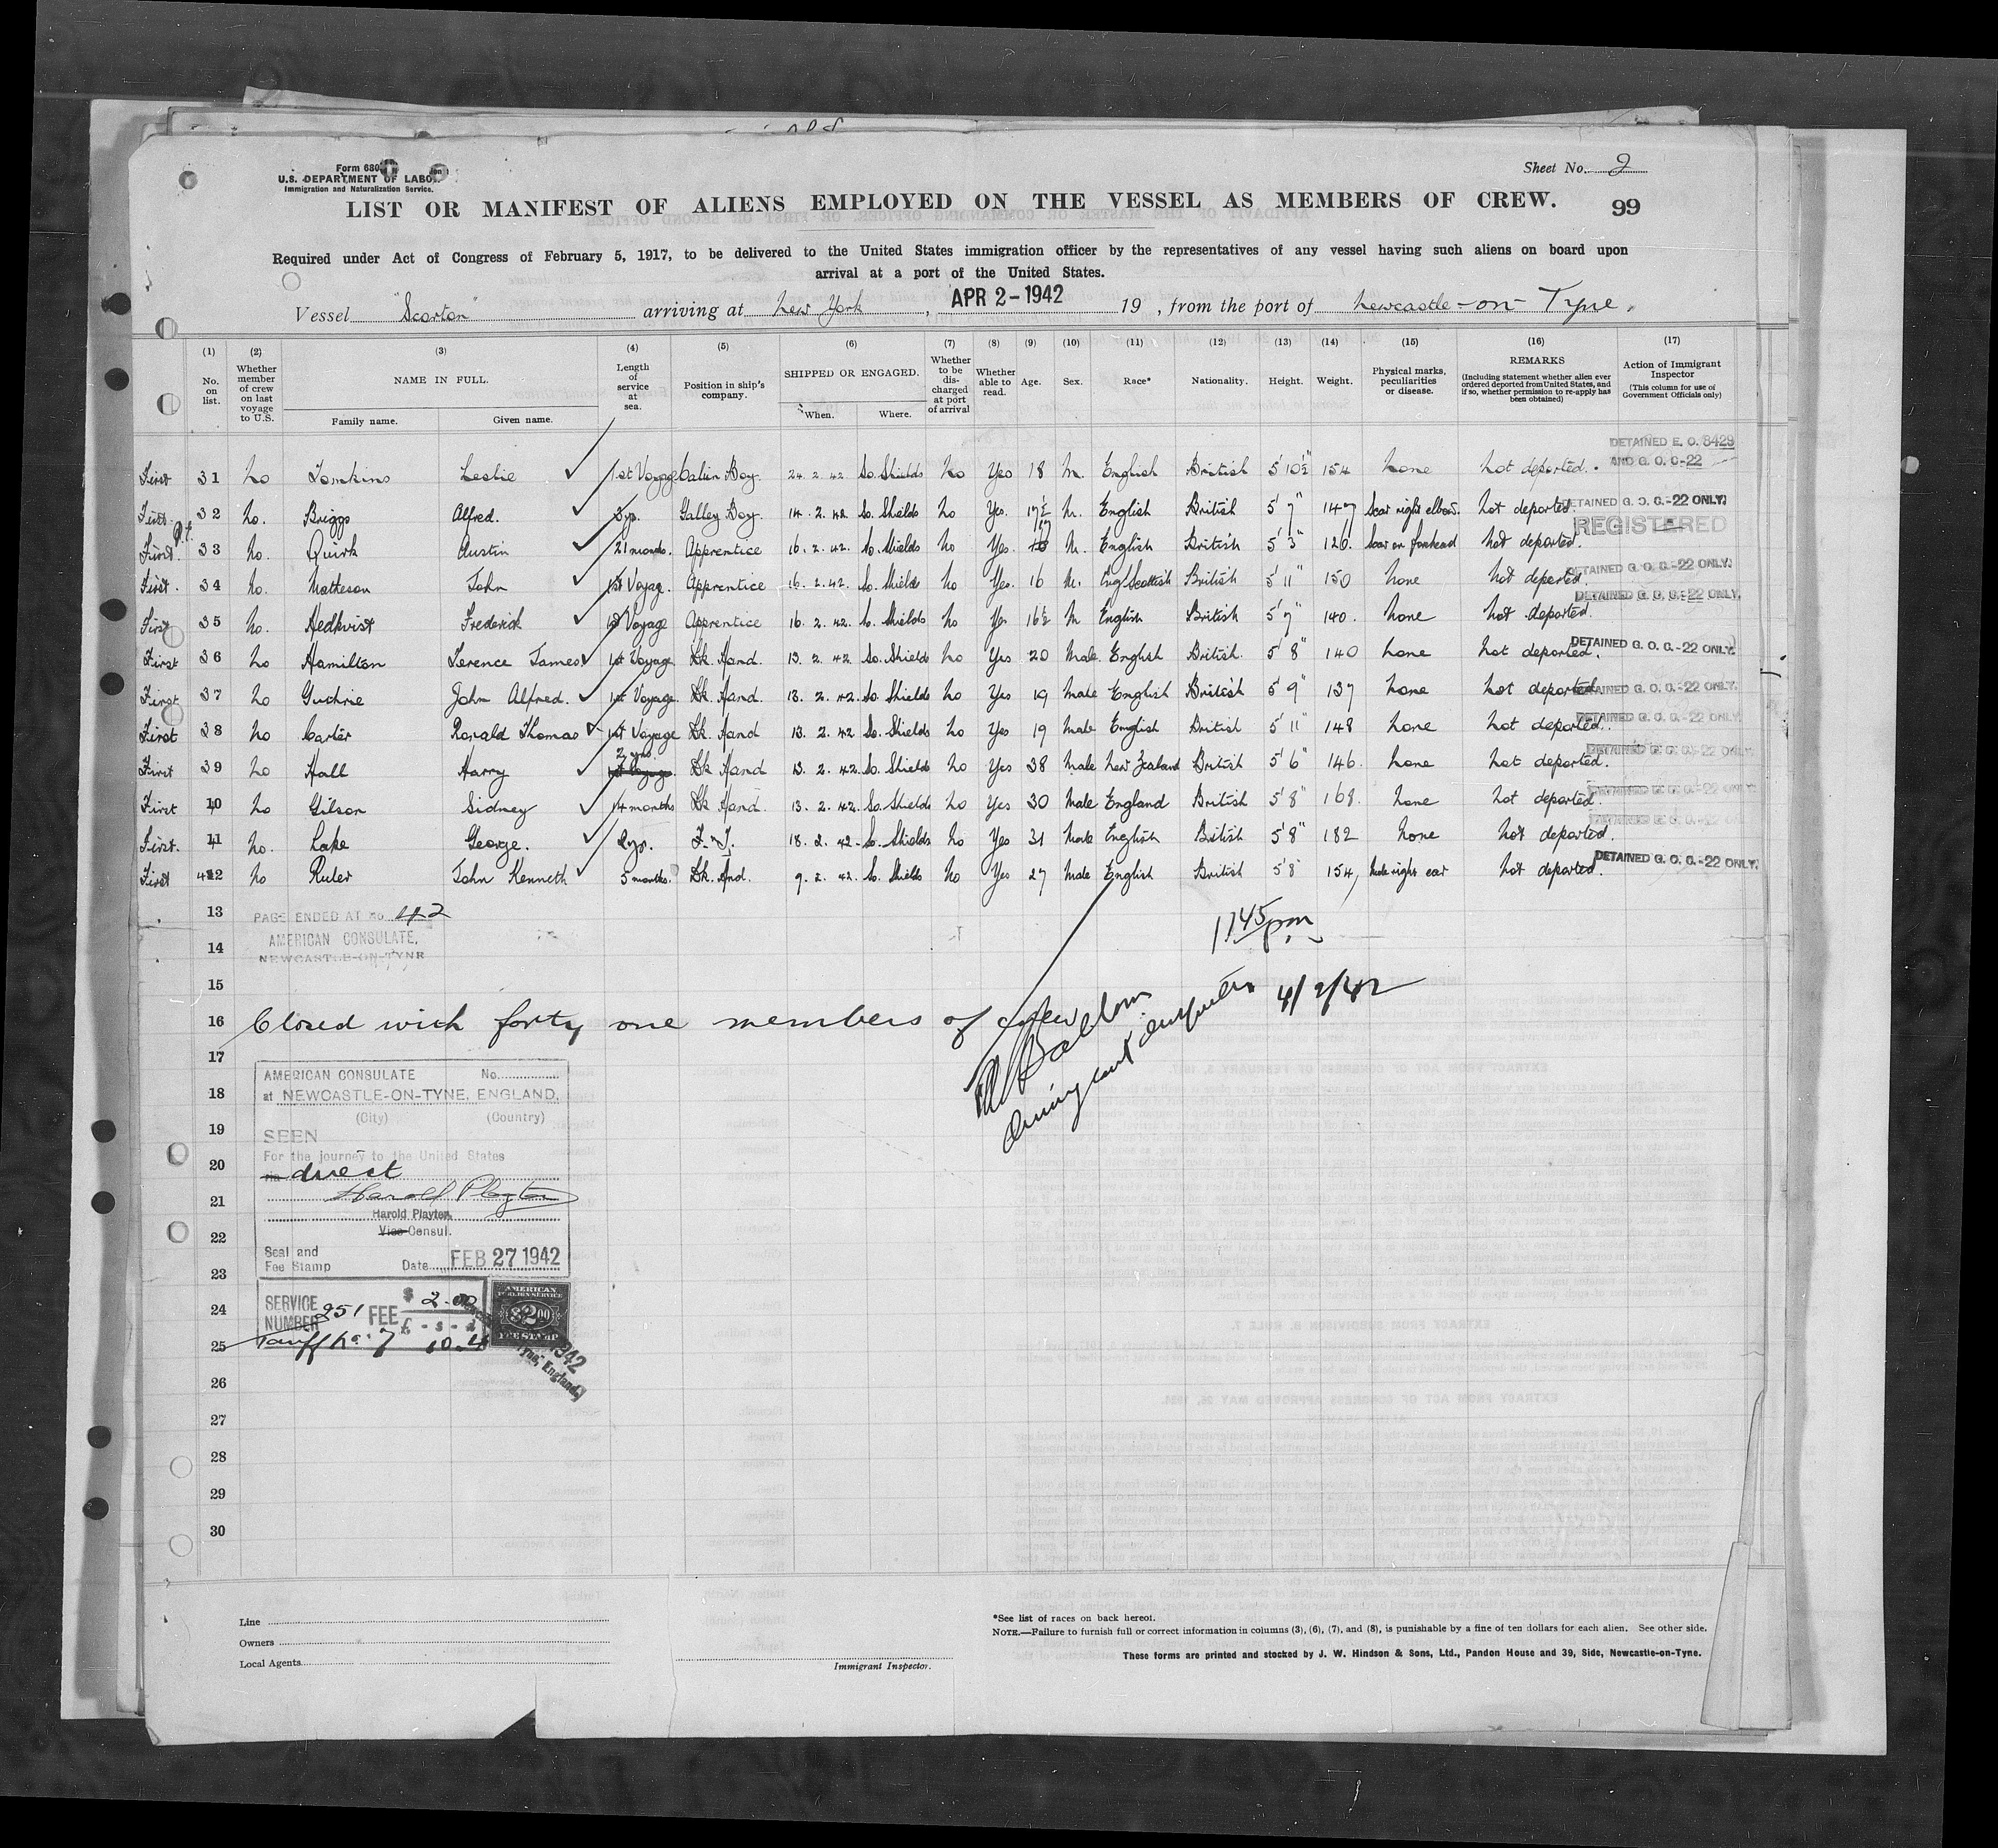 Form 680
U.S. DEPARTMENT OF LABOR
Immigration and Naturalization Service.
Sheet No. 2
LIST OR MANIFEST OF ALIENS EMPLOYED ON THE VESSEL AS MEMBERS OF CREW.
99
Required under Act of Congress of February 5, 1917, to be delivered to the United States immigration officer by the representatives of any vessel having such aliens on board upon
arrival at a port of the United States.
Vessel "Scorton" arriving at New York, APR 2-1942 19 , from the port of Newcastle-on-Tyne.
(1) (2) (3) (4) (5) (6) (7) (8) (9) (10) (11) (12) (13) (14) (15) (16) (17)
No. on list. Whether member of crew on last voyage to U.S. NAME IN FULL. Family name. Given name. Length of service at sea. Position in ship's company. SHIPPED OR ENGAGED. When. Where. Whether to be discharged at port of arrival Whether able to read. Age. Sex. Race* Nationality. Height. Weight. Physical marks, peculiarities or disease. REMARKS (Including statement whether alien ever ordered deported from United States, and if so, whether permission to re-apply has been obtained) Action of Immigrant Inspector (This column for use of Government Officials only)
DETAINED E. O. 8429
AND G. O. C-22
First 31 No Tomkins Leslie 1st Voyage Cabin Boy. 24.2.42 So. Shields No Yes 18 M. English British 5' 10½" 154 None Not deported.
First 32 No. Briggs Alfred. 3 yrs. Galley Boy. 14.2.42 So. Shields No Yes. 17½ M. English British 5' 7" 147 Scar right elbow. Not deported. DETAINED G. O. C.-22 ONLY.
REGISTERED
First 33 No. Quirk Austin 21 months. Apprentice 16.2.42. So. Shields No Yes. 17 M. English British 5' 3" 126. Scar on forehead Not deported.
First. 34 No. Matheson John 1st Voyage. Apprentice 16.2.42. So. Shields No Yes. 16 M. Eng Scottish British 5' 11" 150 None Not deported. DETAINED G. O. C.-22 ONLY.
DETAINED G. O. C.-22 ONLY.
First 35 No. Hedkvist Frederick 1st Voyage Apprentice 16.2.42. So. Shields No Yes 16½ M English British 5' 7" 140. None Not deported.
First 36 No Hamilton Terence James 1st Voyage Dk. Hand. 13.2.42. So. Shields No Yes 20 Male. English British. 5' 8" 140 None Not deported. DETAINED G. O. C.-22 ONLY.
First 37 No Guthrie John Alfred. 1st Voyage. Dk. Hand. 13.2.42. So. Shields No Yes 19 Male English British 5' 9" 137 None Not deported. DETAINED G. O. C.-22 ONLY.
First 38 No Carter Ronald Thomas 1st Voyage Dk. Hand 13.2.42 So. Shields No Yes 19 Male English British 5' 11" 148 None Not deported. DETAINED G. O. C.-22 ONLY.
First 39 No Hall Harry 2 yrs Dk Hand 13.2.42. So. Shields No Yes 38 Male New Zealand British 5' 6" 146. None Not deported. DETAINED G. O. C.-22 ONLY
First 40 No Gilson Sidney 14 months Dk Hand. 13.2.42. So. Shields No Yes 30 Male England British 5' 8" 168. None Not deported.
First. 41 No. Lake George. 2 yrs. F.&T. 18.2.42. So. Shields No Yes 31 Male English British 5' 8" 182 None Not deported.
First 42 No Ruler John Kenneth 5 months. Dk. Hnd. 9.2.42. So. Shields No Yes 27 Male English British 5' 8" 154, Hole right ear Not deported. DETAINED G. O. C.-22 ONLY.
13
PAGE ENDED AT No 42
AMERICAN CONSULATE,
NEWCASTLE-ON-TYNE
1145 pm
14
15
4/2/42
16 Closed with forty one members of crew
Immigrant Inspector
17
AMERICAN CONSULATE No.
18
at NEWCASTLE-ON-TYNE, ENGLAND.
(City) (Country)
19
SEEN
For the journey to the United States
20
via direct
21
Harold Playter
Harold Playter.
Vice Consul.
22
Seal and
Fee Stamp Date FEB 27 1942
23
24
SERVICE NUMBER 951 FEE $ 2.00
£ - s - d
25
Tariff No. 7 10-4
AMERICAN FOREIGN SERVICE
$2.00
FEE STAMP
1942
Tyne, England
26
27
28
29
30
Line
Owners
Local Agents
Immigrant Inspector.
*See list of races on back hereof.
NOTE.—Failure to furnish full or correct information in columns (3), (6), (7), and (8), is punishable by a fine of ten dollars for each alien. See other side.
These forms are printed and stocked by J. W. Hindson & Sons, Ltd., Pandon House and 39, Side, Newcastle-on-Tyne.